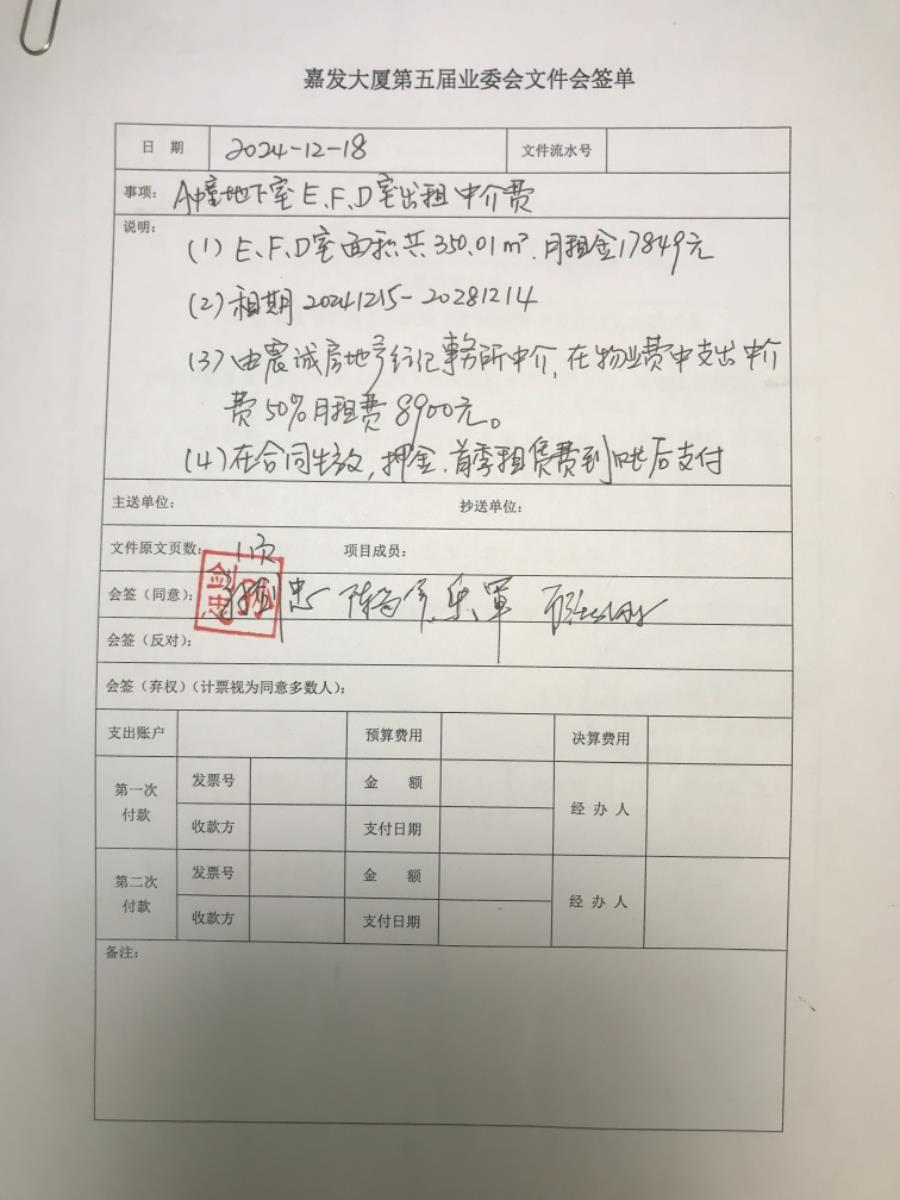 嘉发大厦第五届业委会文件会签单
日 期 2024-12-18 文件流水号
事项: A幢地下室E、F、D室出租中介费
说明:
(1) E、F、D室面积共350.01m². 月租金17849元
(2) 租期20241215-20281214
(3) 由震诚房地产经纪事务所中介, 在物业费中支出中介
费50%月租费8900元。
(4) 在合同生效, 押金、首季租赁费到账后支付
主送单位: 抄送单位:
文件原文页数: 1页 项目成员:
会签（同意）:
会签（反对）:
会签（弃权）（计票视为同意多数人）:
支出账户 预算费用 决算费用
第一次付款 发票号 金 额 经 办 人
收款方 支付日期
第二次付款 发票号 金 额 经 办 人
收款方 支付日期
备注: